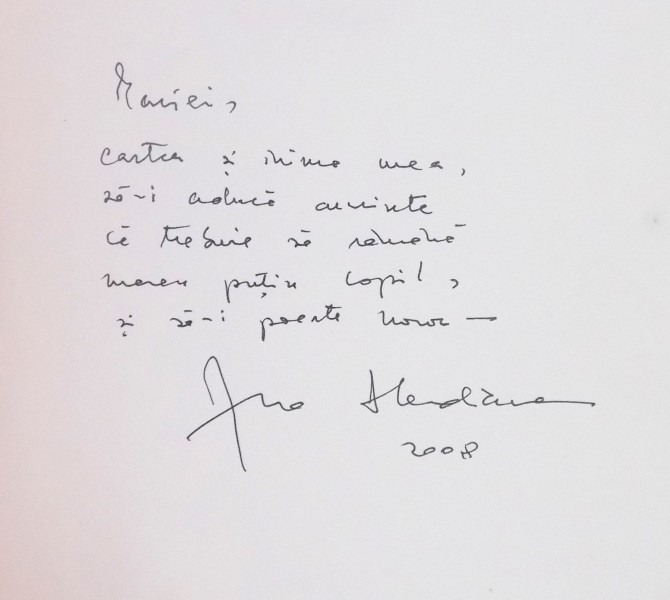 Mariei,
cartea și inima mea,
să-i aducă aminte
că trebuie să rămână
mereu puțin copil,
și să-i poarte noroc —
Ana Blandiana
2008